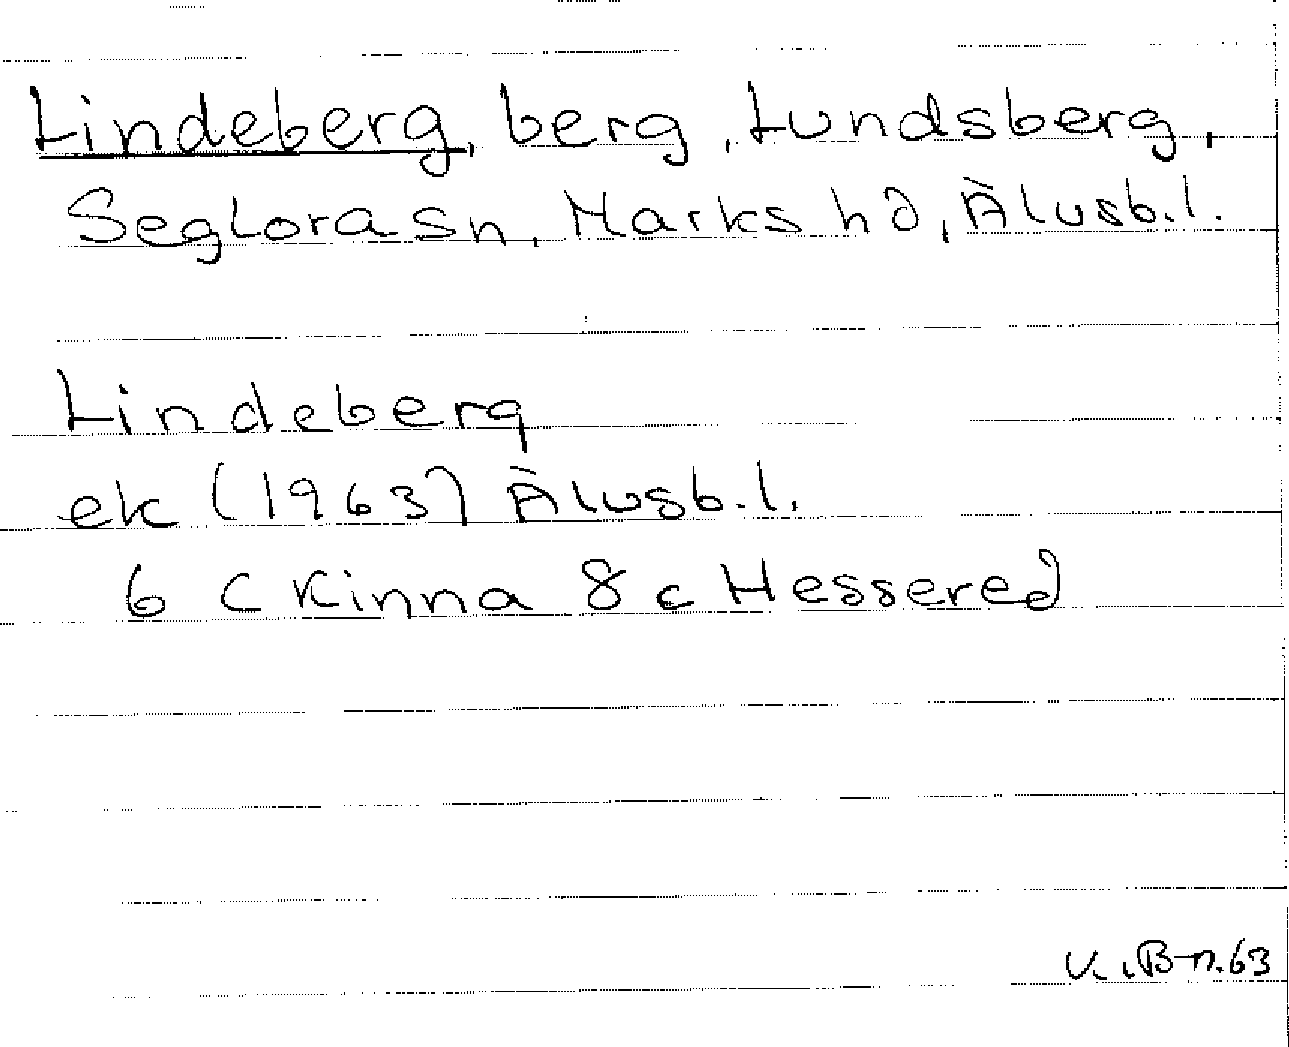 Lindeberg, berg, Lundsberg,
Seglora sn, Marks hd, Älvsb.l.
Lindeberg
ek (1963) Älvsb.l.
6 C Kinna 8 c Hessered
B-n.63